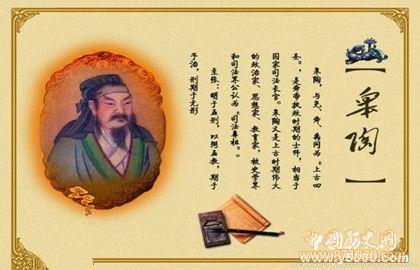 【皋陶】
皋陶，与尧、舜、禹同为“上古四
圣”，是舜帝执政时期的士师，相当于
国家司法长官。皋陶又是上古时期伟大
的政治家、思想家、教育家，被史学界
和司法界公认为“司法鼻祖”。
主张：明于五刑，以弼五教，期于
不治，刑期于无形
中国历史网